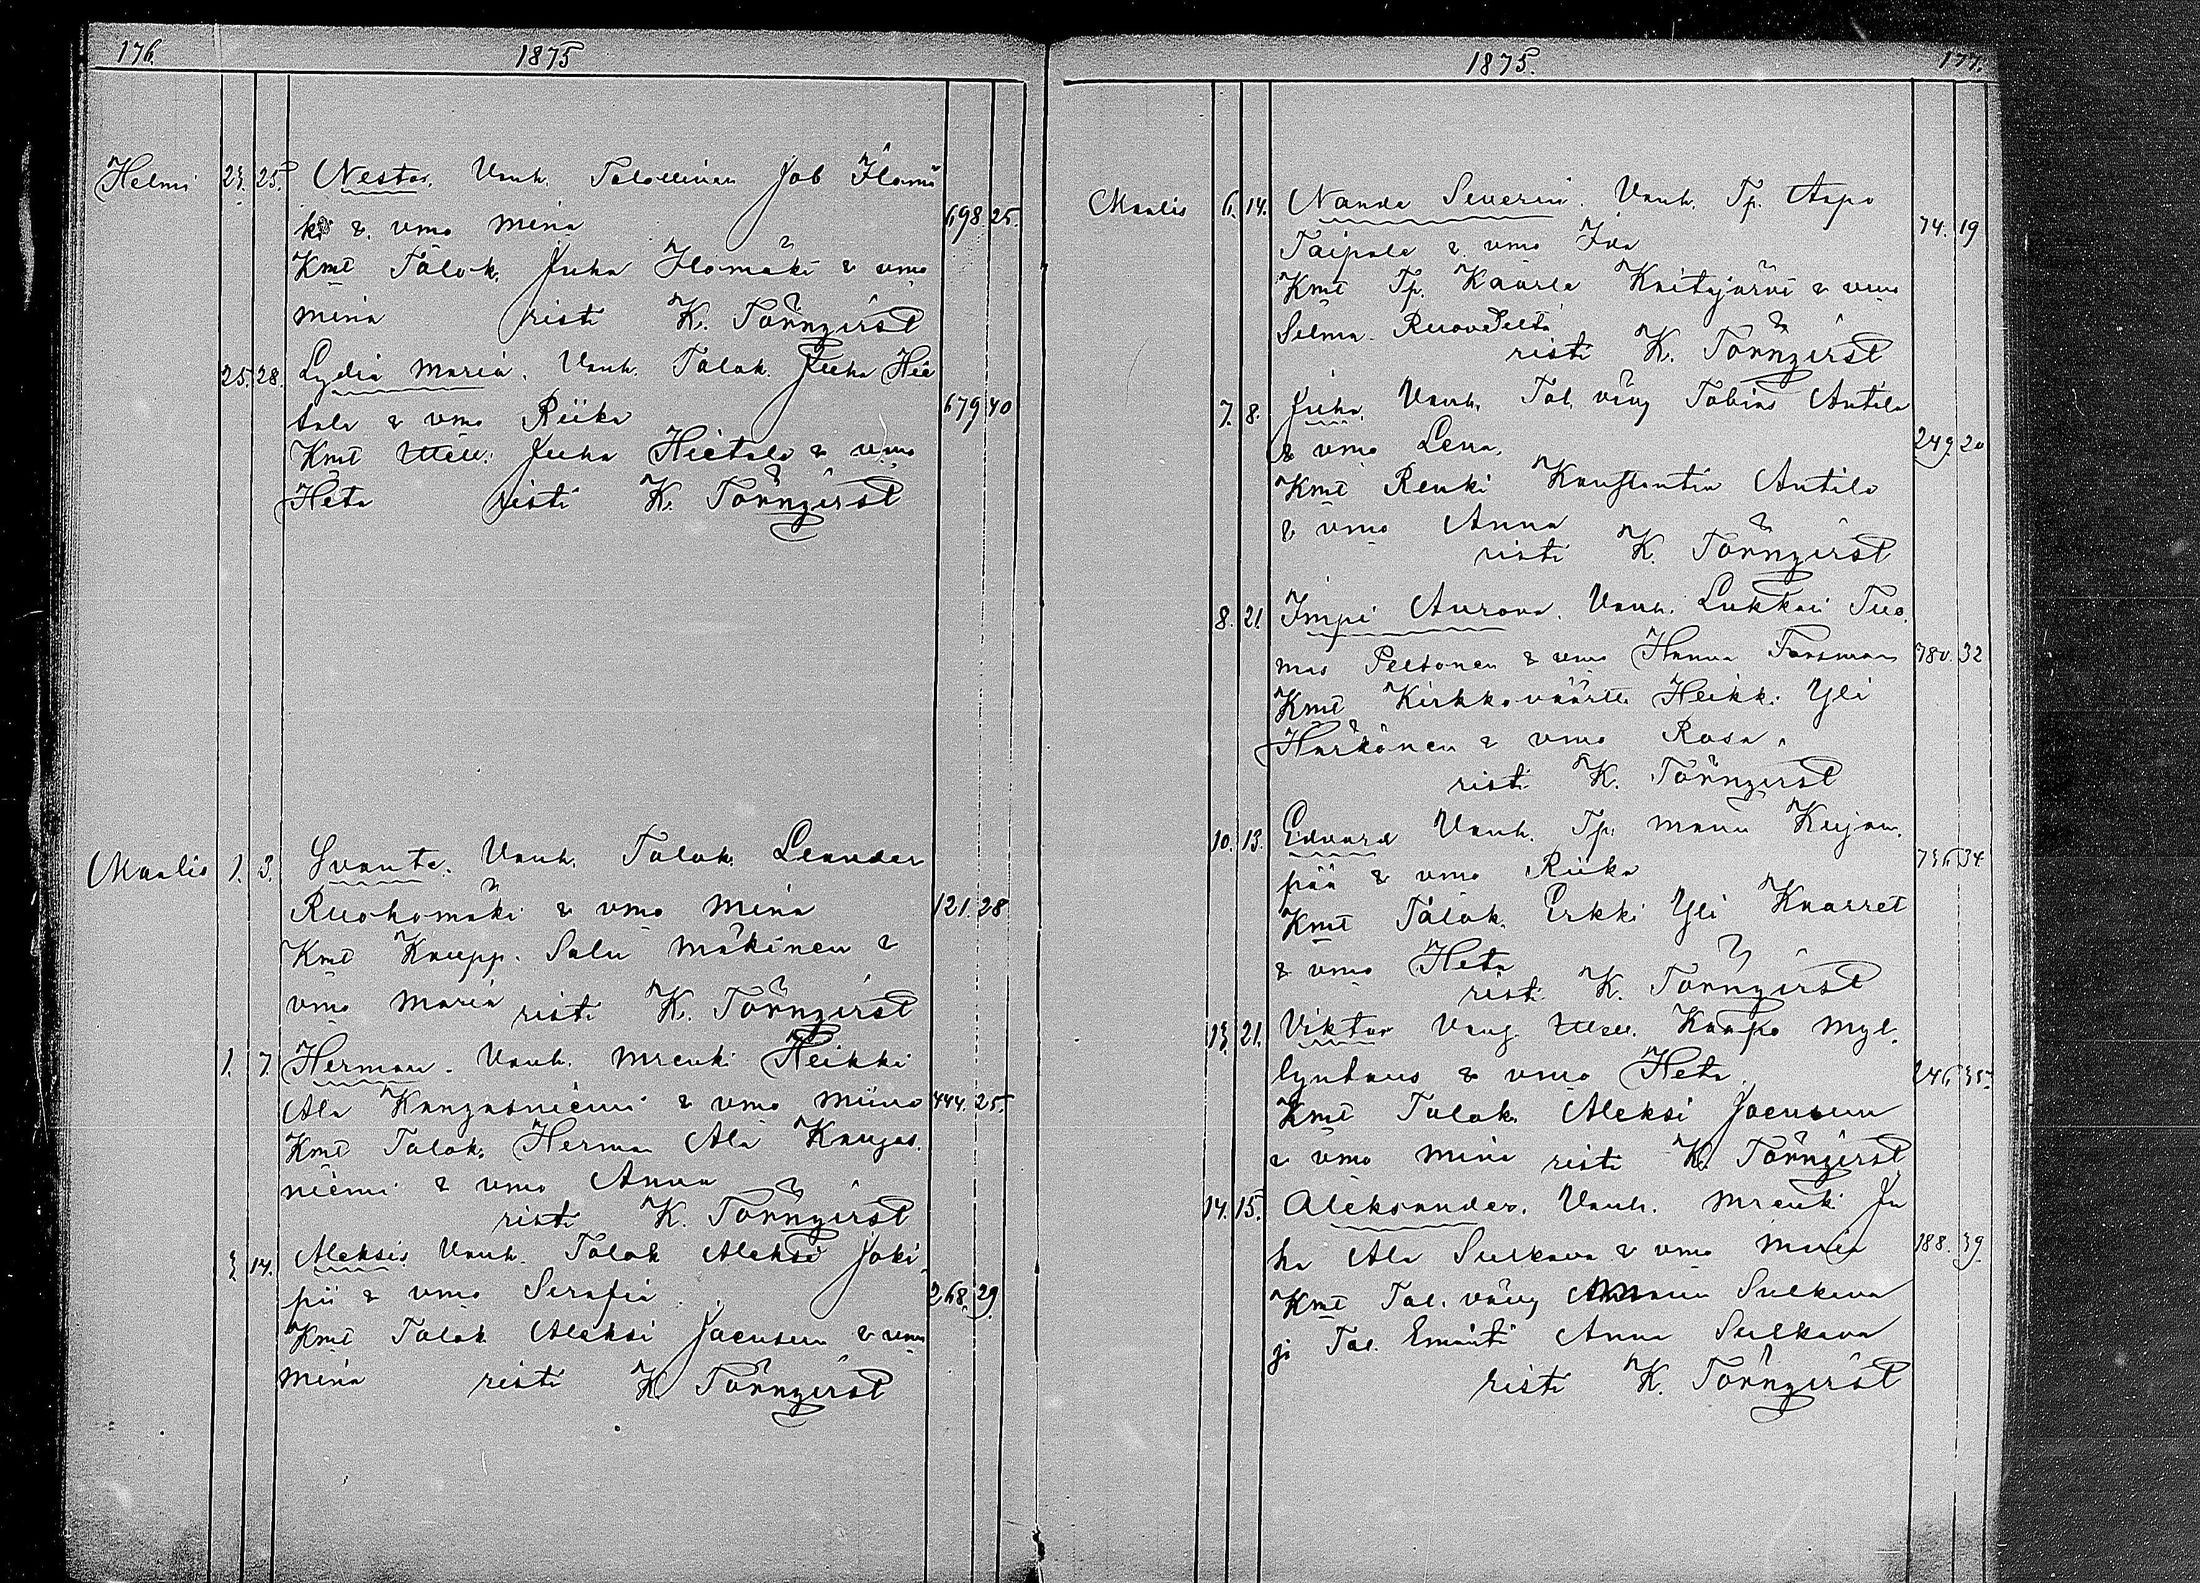 176. 1875
Helmi 23. 25. Nestor. Vanh. Talollinen Job Ilomä
ki & vmo Mina 698 25.
Kmt Talok. Juha Ilomäki & vmo
Mina risti K. Törnqvist
25. 28. Lydia Maria. Vanh. Talok. Juha Hie
tala & vmo Riika 679 40
Kmt Itell. Juha Hietala & vmo
Heta risti K. Törnqvist
Maalis 1. 3. Svante. Vanh. Talok. Leander
Ruohomäki & vmo Mina 121. 28
Kmt Kaupp. Salu Mäkinen &
vmo Maria risti K. Törnqvist
1. 7. Herman. Vanh. Mrenki Heikki
Ala Kangasniemi & vmo Miina 444. 25.
Kmt Talok. Herman Ala Kangas
niemi & vmo Anna
risti K. Törnqvist
3. 14. Aleksis. Vanh. Talok Aleksi Joki
pii & vmo Serafia 268. 29.
Kmt Talok Aleksi Jaensuu & vmo
Mina risti K. Törnqvist
1875. 177.
Maalis 6. 14. Nanda Severin. Vanh. Tp. Aapo
Taipale & vmo Ida 74. 19
Kmt Tp. Kaarle Kaitajärvi & vmo
Selma Ruovedeltä
risti K. Törnqvist
7. 8. Juha. Vanh. Tal. vävy Tobias Antila
& vmo Lena. 249. 20
Kmt Renki Konstantin Antila
& vmo Anna
risti K. Törnqvist
8. 21. Impi Aurora. Vanh. Lukkari Tuo
mas Peltonen & vmo Hanna Forsman 780. 32
Kmt Kirkkoväärti Heikki Yli
Härkönen & vmo Rosa.
risti K. Törnqvist
10. 13. Edvard Vanh. Tp. Manu Kujan
pää & vmo Riika 736 34
Kmt Talok. Erkki Yli Knarret
& vmo Heta
risti K. Törnqvist
13. 21. Viktor Vanh. Itsell. Kaapo Myl
lyntaus & vmo Heta. 246 35
Kmt Talok. Aleksi Jaensuu
& vmo Mina risti K. Törnqvist
14. 15. Aleksander. Vanh. Mrenki Ju
ha Ala Sulkava & vmo Maria 188. 39.
Kmt Tal. vävy Manu Sulkava
ja Tal. Emäntä Anna Sulkava
risti K. Törnqvist